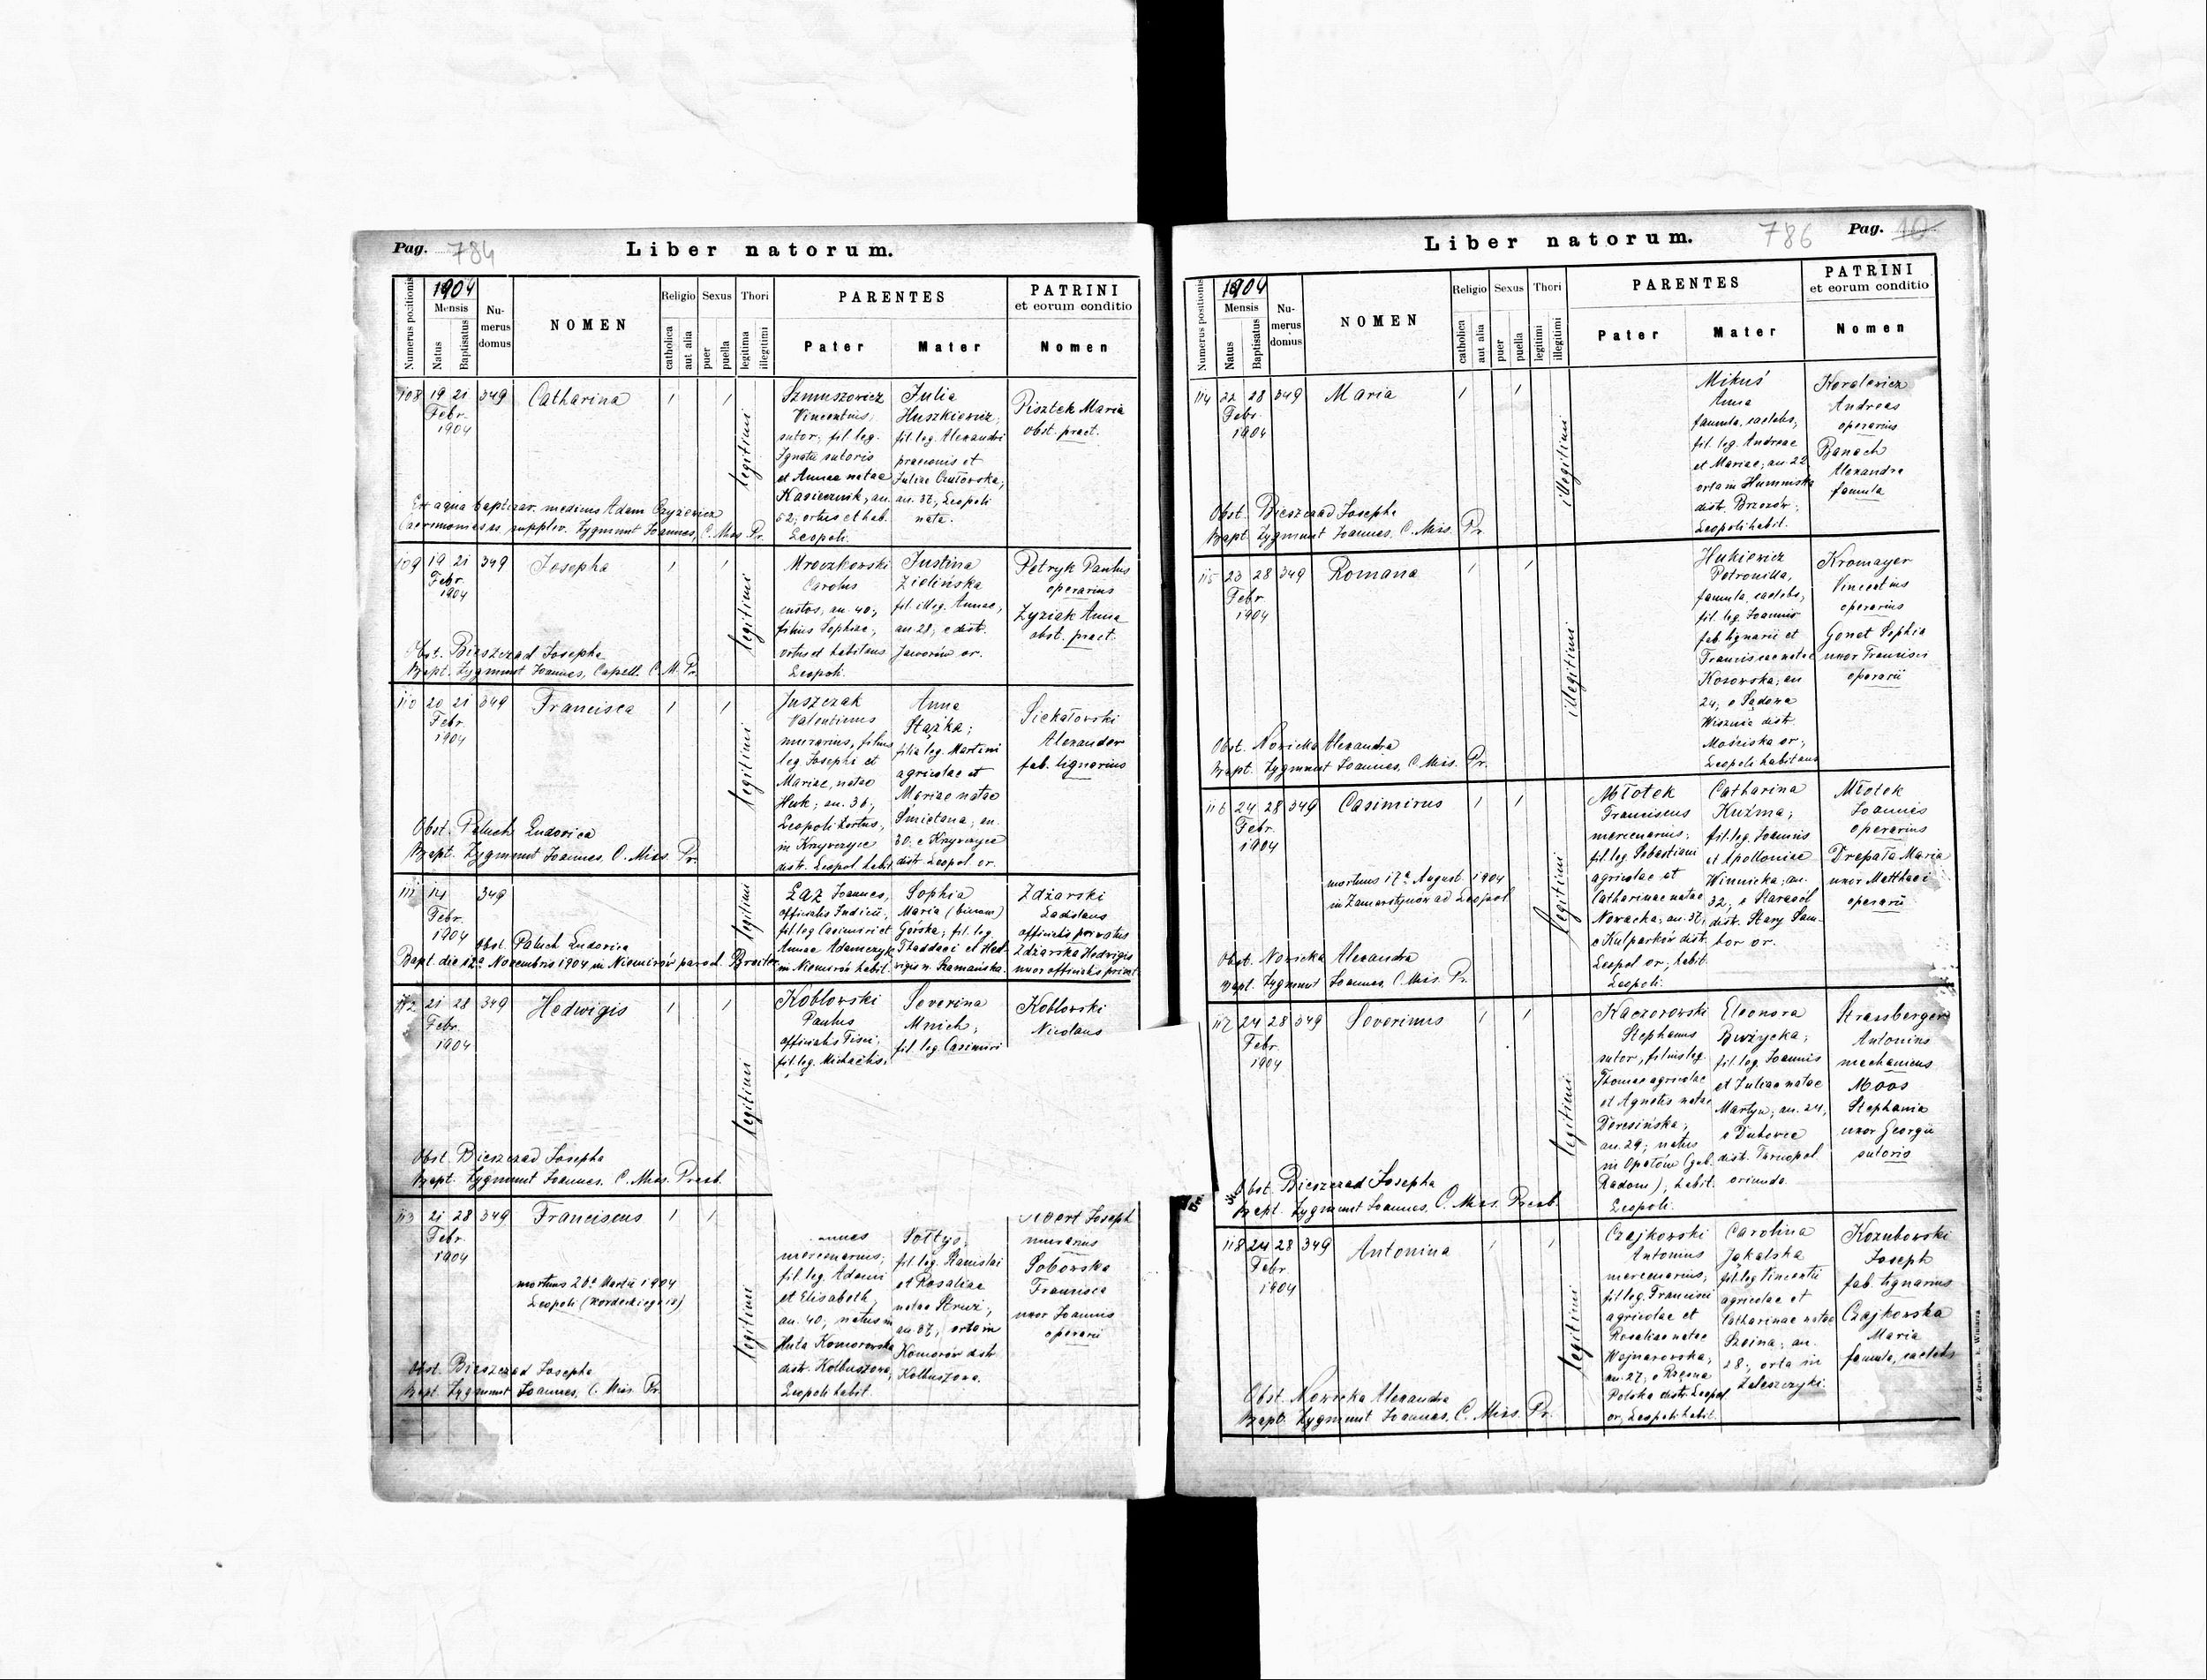 Pag. 784
Liber natorum.
Numerus positionis
1904
Mensis
Natus
Baptisatus
Numerus domus
NOMEN
Religio
catholica
aut alia
Sexus
puer
puella
Thori
legitima
illegitimi
PARENTES
Pater
Mater
PATRINI
et eorum conditio
Nomen
108 19 21 349 Catharina 1 1
Febr.
1904
legitimi
Szmuszowicz
Vincentius,
sutor; fil. leg.
Ignatii sutoris
et Annae natae
an.
52; ortus et hab.
Leopoli.
Julia
Huszkiewicz,
fil. leg. Alexandri
praeconis et
Juliae
an. 37, Leopoli
nata.
Pisztek Maria
obst. pract.
Ex aqua baptizav. medicus Adam Czyżewicz
Caeremonias supplev. Zygmunt Joannes, C. Miss. Pr.
109 19 21 349 Josepha 1 1
Febr.
1904
legitimi
Mroczkowski
Carolus
custos, an. 40;
filius Sophiae,
ortus et habitans
Leopoli.
Justina
Zielińska
fil. illeg. Annae,
an. 28; e distr.
Jaworów or.
Petryk Paulus
operarius
Zyziak Anna
obst. pract.
Obst. Bieszczad Josepha
Bapt. Zygmunt Joannes, Capell. C. M. Pr.
110 20 21 349 Francisca 1 1
Febr.
1904
legitimi
Juszczak
Valentinus
murarius, filius
leg. Josephi et
Mariae, natae
Huk; an. 36;
Leopoli ortus,
in Krzywczyce
distr. Leopol habit.
Anna
Stążka;
filia leg. Martini
agricolae et
Mariae natae
Śmietana; an.
30; e Krzywczyce
distr. Leopol or.
Siekałowski
Alexander
fab. lignarius
Obst. Paluch Ludovica
Bapt. Zygmunt Joannes, C. Miss. Pr.
111 14 349
Febr.
1904
legitimi
Łaz Joannes,
officialis Judicii,
fil. leg Casimiri et
Annae Adamczyk
in Niemirów habit.
Sophia
Maria (binom)
Górska; fil. leg.
Thaddaei et Hed-
vigis n. Szamańska.
Zdżarski
Ladislaus
officialis privatus
Zdżarska Hedvigis
uxor officialis privat.
Obst. Paluch Ludovica
Bapt. die 12a Novembris 1904 in Niemirów paroch.
112 21 28 349 Hedwigis 1 1
Febr.
1904
legitimi
Koblowski
Paulus
officialis Fisci,
fil. leg. Michaëlis,
Severina
Mnich,
fil. leg. Casimiri
Koblowski
Nicolaus
Obst. Bieszczad Josepha
Bapt. Zygmunt Joannes, C. Miss. Presb.
113 21 28 349 Franciscus 1 1
Febr.
1904
mortuus 20a Martii 1904
Leopoli
legitimi
mercenarius;
fil. leg. Adami
et Elisabeth,
an. 40; natus in
Huta Komorowska
distr. Kolbuszowa,
Leopoli habit.
Sołtys,
fil. leg. Stanislai
et Rosaliae
natae
an. 37; orta in
Komorów distr.
Kolbuszowa.
Joseph
murarius
Soborska
Francisca
uxor Joannis
operarii
Obst. Bieszczad Josepha
Bapt. Zygmunt Joannes, C. Miss. Pr.
Liber natorum.
786
Pag. 10
Numerus positionis
1904
Mensis
Natus
Baptisatus
Numerus domus
NOMEN
Religio
catholica
aut alia
Sexus
puer
puella
Thori
legitimi
illegitimi
PARENTES
Pater
Mater
PATRINI
et eorum conditio
Nomen
114 22 28 349 Maria 1 1
Febr.
1904
illegitimi
Mikuś
Anna
famula, caelebs,
fil. leg. Andreae
et Mariae; an 22
orta in Humniska
distr. Brzozów;
Leopoli habit.
Kowalewicz
Andreas
operarius
Banach
Alexandra
famula
Obst. Bieszczad Josepha
Bapt. Zygmunt Joannes, C. Miss. Pr.
115 23 28 349 Romana 1 1
Febr.
1904
illegitimi
Hukiewicz
Petronilla,
famula, caelebs,
fil. leg. Joannis
fab. lignarii et
Franciscae natae
Kosowska; an
24; e Sądowa
Wisznia distr.
Mościska or;
Leopoli habitans
Kromayer
Vincentius
operarius
Gonet Sophia
uxor Francisci
operarii
Obst. Nowicka Alexandra
Bapt. Zygmunt Joannes, C. Miss. Pr.
116 24 28 349 Casimirus 1 1
Febr.
1904
mortuus 17a August. 1904
in Zamarstynów ad Leopol
legitimi
Młotek
Franciscus
mercenarius;
fil. leg. Sebastiani
agricolae et
Catharinae natae
Nowacka; an. 37;
e Kulparków distr.
Leopol or; habit.
Leopoli.
Catharina
Kuźma;
fil. leg. Joannis
et Apolloniae
Winnicka; an.
32; e Starasól
distr. Stary Sam-
bor or.
Młotek
Joannes
operarius
Drepała Maria
uxor Matthaei
operarii
Obst. Nowicka Alexandra
Bapt. Zygmunt Joannes, C. Miss. Pr.
117 24 28 349 Severinus 1 1
Febr.
1904
legitimi
Kaczorowski
Stephanus
sutor, filius leg.
Thomae agricolae
et Agnetis natae
Deresińska;
an. 29; natus
in Opatów (gub.
Radom); habit.
Leopoli.
Eleonora
Bwżycka;
fil. leg. Joannis
et Juliae natae
Martyn; an. 24;
e Dubowce
distr. Tarnopol
oriunda.
Strassberger
Antonius
mechanicus
Moos
Stephania
uxor Georgii
sutoris
Obst. Bieszczad Josepha
Bapt. Zygmunt Joannes, C. Miss. Presb.
118 24 28 349 Antonina 1 1
Febr.
1904
legitimi
Czajkowski
Antonius
mercenarius;
fil. leg. Francisci
agricolae et
Rosaliae natae
Wojnarowska;
an. 27; e Rzęsna
Polska distr. Leopol
or; Leopoli habit.
Carolina
Jakalska
fil. leg Vincentii
agricolae et
Catharinae natae
Szeina; an.
28; orta in
Zaleszczyki.
Kozubowski
Joseph
fab. lignarius
Czajkowska
Maria
famula, caelebs
Obst. Nowicka Alexandra
Bapt. Zygmunt Joannes, C. Miss. Pr.
Z drukarn. E. Winiarza